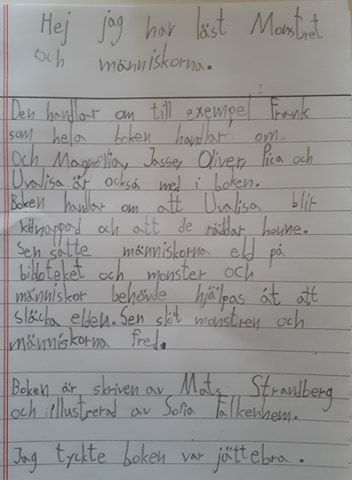 Hej jag har läst Monstret
och människorna.
Den handlar om till exempel Frank
som hela boken handlar om.
Och Magnolia, Jasse, Oliver, Pica och
Uvalisa är också med i boken.
Boken handlar om att Uvalisa blir
kidnappad och att de räddar henne.
Sen satte människorna eld på
biblioteket och monster och
människor behövde hjälpas åt att
släcka elden. Sen slöt monstren och
människorna fred.
Boken är skriven av Mats Strandberg
och illustrerad av Sofia Falkenhem.
Jag tyckte boken var jättebra.